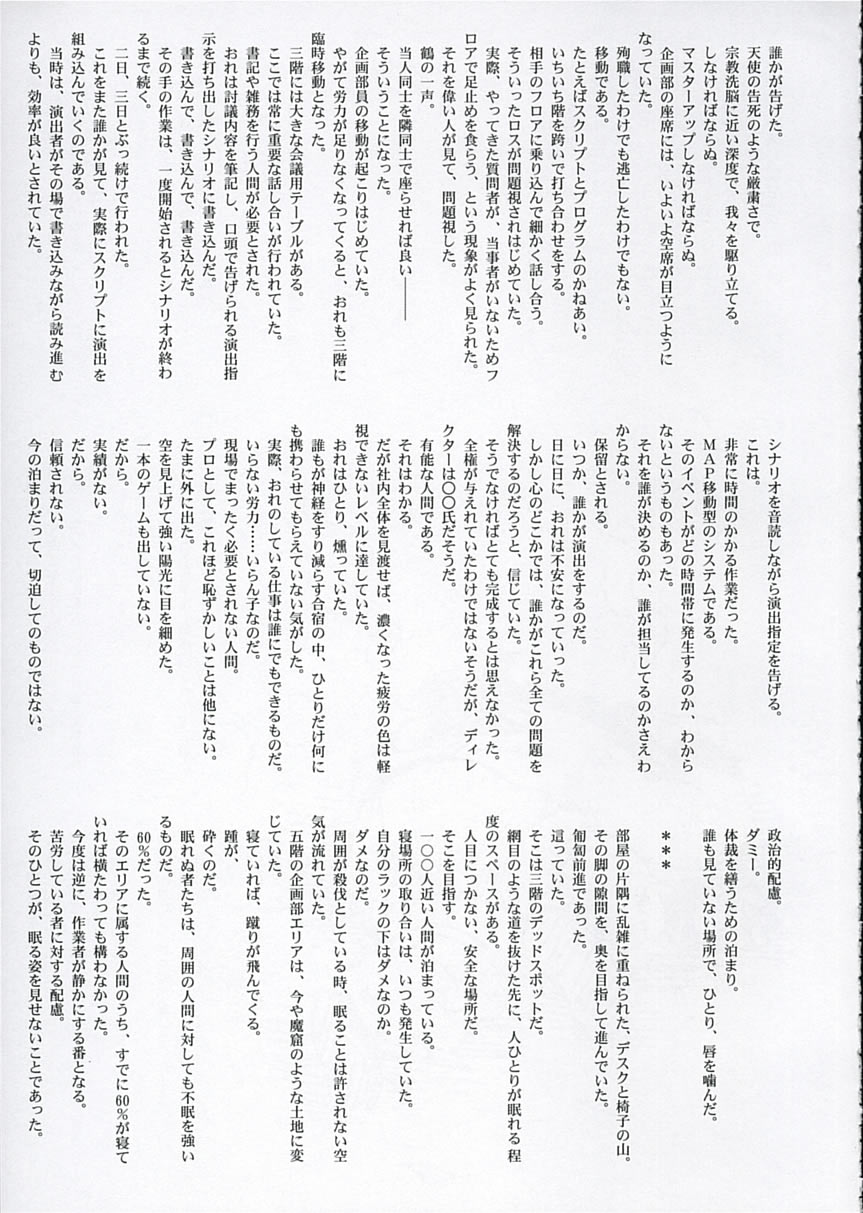 誰かが告げた。
天使の告死のような厳粛さで。
宗教洗脳に近い深度で、我々を駆り立てる。
しなければならぬ。
マスターアップしなければならぬ。
企画部の座席には、いよいよ空席が目立つように
なっていた。
殉職したわけでも逃亡したわけでもない。
移動である。
たとえばスクリプトとプログラムのかねあい。
いちいち階を跨いで打ち合わせをする。
相手のフロアに乗り込んで細かく話し合う。
そういったロスが問題視されはじめていた。
実際、やってきた質問者が、当事者がいないためフ
ロアで足止めを食らう、という現象がよく見られた。
それを偉い人が見て、問題視した。
鶴の一声。
当人同士を隣同士で座らせれば良い――
そういうことになった。
企画部員の移動が起こりはじめていた。
やがて労力が足りなくなってくると、おれも三階に
臨時移動となった。
三階には大きな会議用テーブルがある。
ここでは常に重要な話し合いが行われていた。
書記や雑務を行う人間が必要とされた。
おれは討議内容を筆記し、口頭で告げられる演出指
示を打ち出したシナリオに書き込んだ。
書き込んで、書き込んで、書き込んだ。
その手の作業は、一度開始されるとシナリオが終わ
るまで続く。
二日、三日とぶっ続けで行われた。
これをまた誰かが見て、実際にスクリプトに演出を
組み込んでいくのである。
当時は、演出者がその場で書き込みながら読み進む
よりも、効率が良いとされていた。
シナリオを音読しながら演出指定を告げる。
これは。
非常に時間のかかる作業だった。
ＭＡＰ移動型のシステムである。
そのイベントがどの時間帯に発生するのか、わから
ないというものもあった。
それを誰が決めるのか、誰が担当してるのかさえわ
からない。
保留とされる。
いつか、誰かが演出をするのだ。
日に日に、おれは不安になっていった。
しかし心のどこかでは、誰かがこれら全ての問題を
解決するのだろうと、信じていた。
そうでなければとても完成するとは思えなかった。
全権が与えれていたわけではないそうだが、ディレ
クターは〇〇氏だそうだ。
有能な人間である。
それはわかる。
だが社内全体を見渡せば、濃くなった疲労の色は軽
視できないレベルに達していた。
おれはひとり、燻っていた。
誰もが神経をすり減らす合宿の中、ひとりだけ何に
も携わらせてもらえていない気がした。
実際、おれのしている仕事は誰にでもできるものだ。
いらない労力……いらん子なのだ。
現場でまったく必要とされない人間。
プロとして、これほど恥ずかしいことは他にない。
たまに外に出た。
空を見上げて強い陽光に目を細めた。
一本のゲームも出していない。
だから。
実績がない。
だから。
信頼されない。
今の泊まりだって、切迫してのものではない。
政治的配慮。
ダミー。
体裁を繕うための泊まり。
誰も見ていない場所で、ひとり、唇を噛んだ。
＊＊＊
部屋の片隅に乱雑に重ねられた、デスクと椅子の山。
その脚の隙間を、奥を目指して進んでいた。
匍匐前進であった。
這っていた。
そこは三階のデッドスポットだ。
網目のような道を抜けた先に、人ひとりが眠れる程
度のスペースがある。
人目につかない、安全な場所だ。
そこを目指す。
一〇〇人近い人間が泊まっている。
寝場所の取り合いは、いつも発生していた。
自分のラックの下はダメなのか。
ダメなのだ。
周囲が殺伐としている時、眠ることは許されない空
気が流れていた。
五階の企画部エリアは、今や魔窟のような土地に変
じていた。
寝ていれば、蹴りが飛んでくる。
踵が、
砕くのだ。
眠れぬ者たちは、周囲の人間に対しても不眠を強い
るものだ。
60％だった。
そのエリアに属する人間のうち、すでに60％が寝て
いれば横たわっても構わなかった。
今度は逆に、作業者が静かにする番となる。
苦労している者に対する配慮。
そのひとつが、眠る姿を見せないことであった。